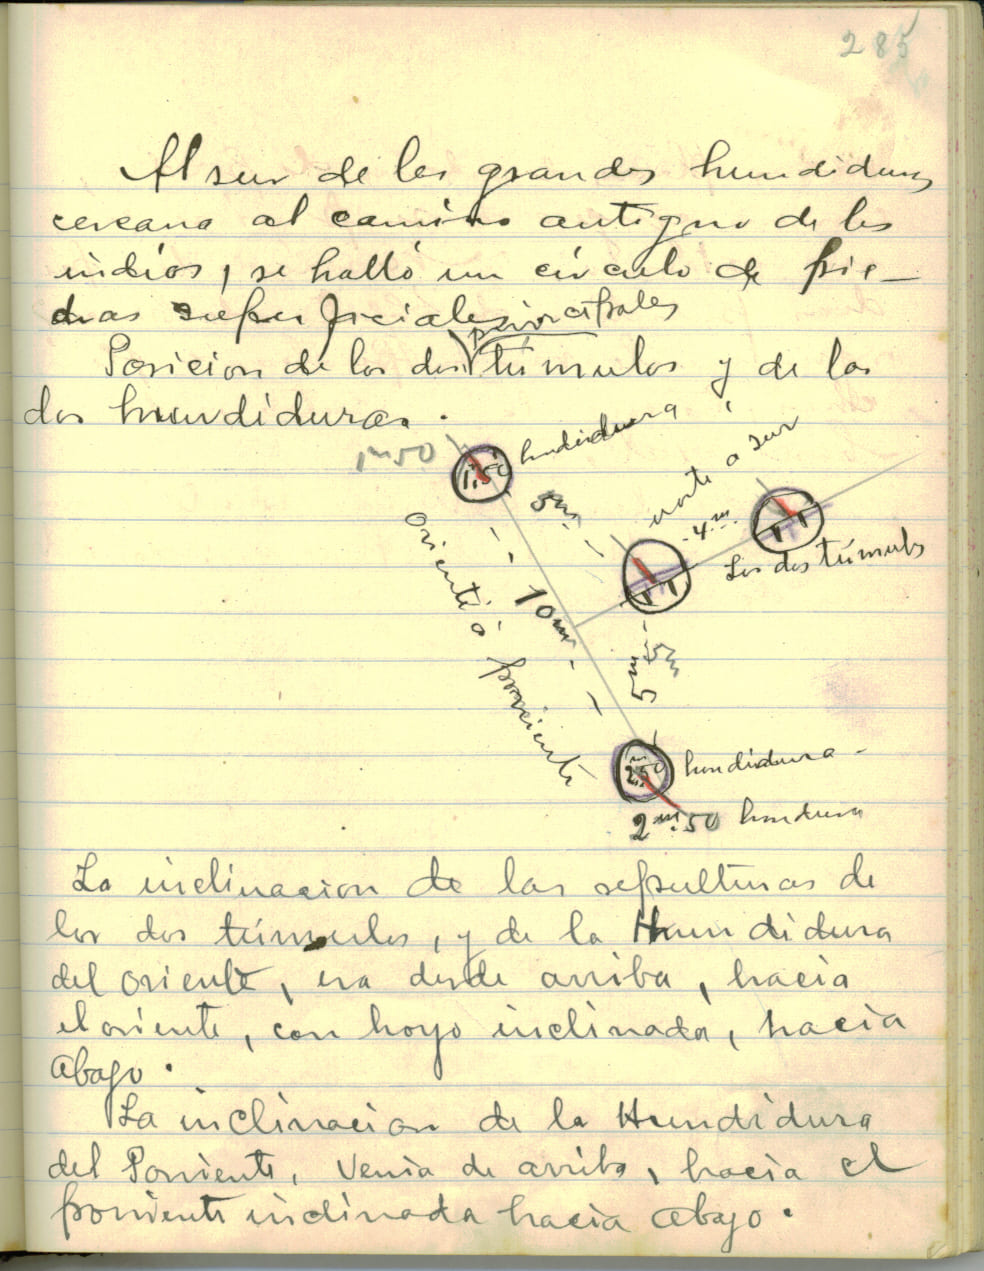 285
Al sur de las grandes hundiduras
cercana al camino antiguo de los
indios, se halló un círculo de pie-
dras superficiales
principales
Posicion de los dos túmulos y de las
dos hundiduras.
1m50
1m50
hundidura
5m
norte a sur
4m
Los dos túmulos
oriente á poniente
10m
5m
5m
2m50
hundidura
2m.50 hondura
La inclinacion de las sepulturas de
los dos túmulos, y de la Hundidura
del oriente, era desde arriba, hacia
el oriente, con hoyo inclinado, hacia
abajo.
La inclinacion de la Hundidura
del Poniente, venia de arriba, hacia el
poniente inclinada hacia abajo.